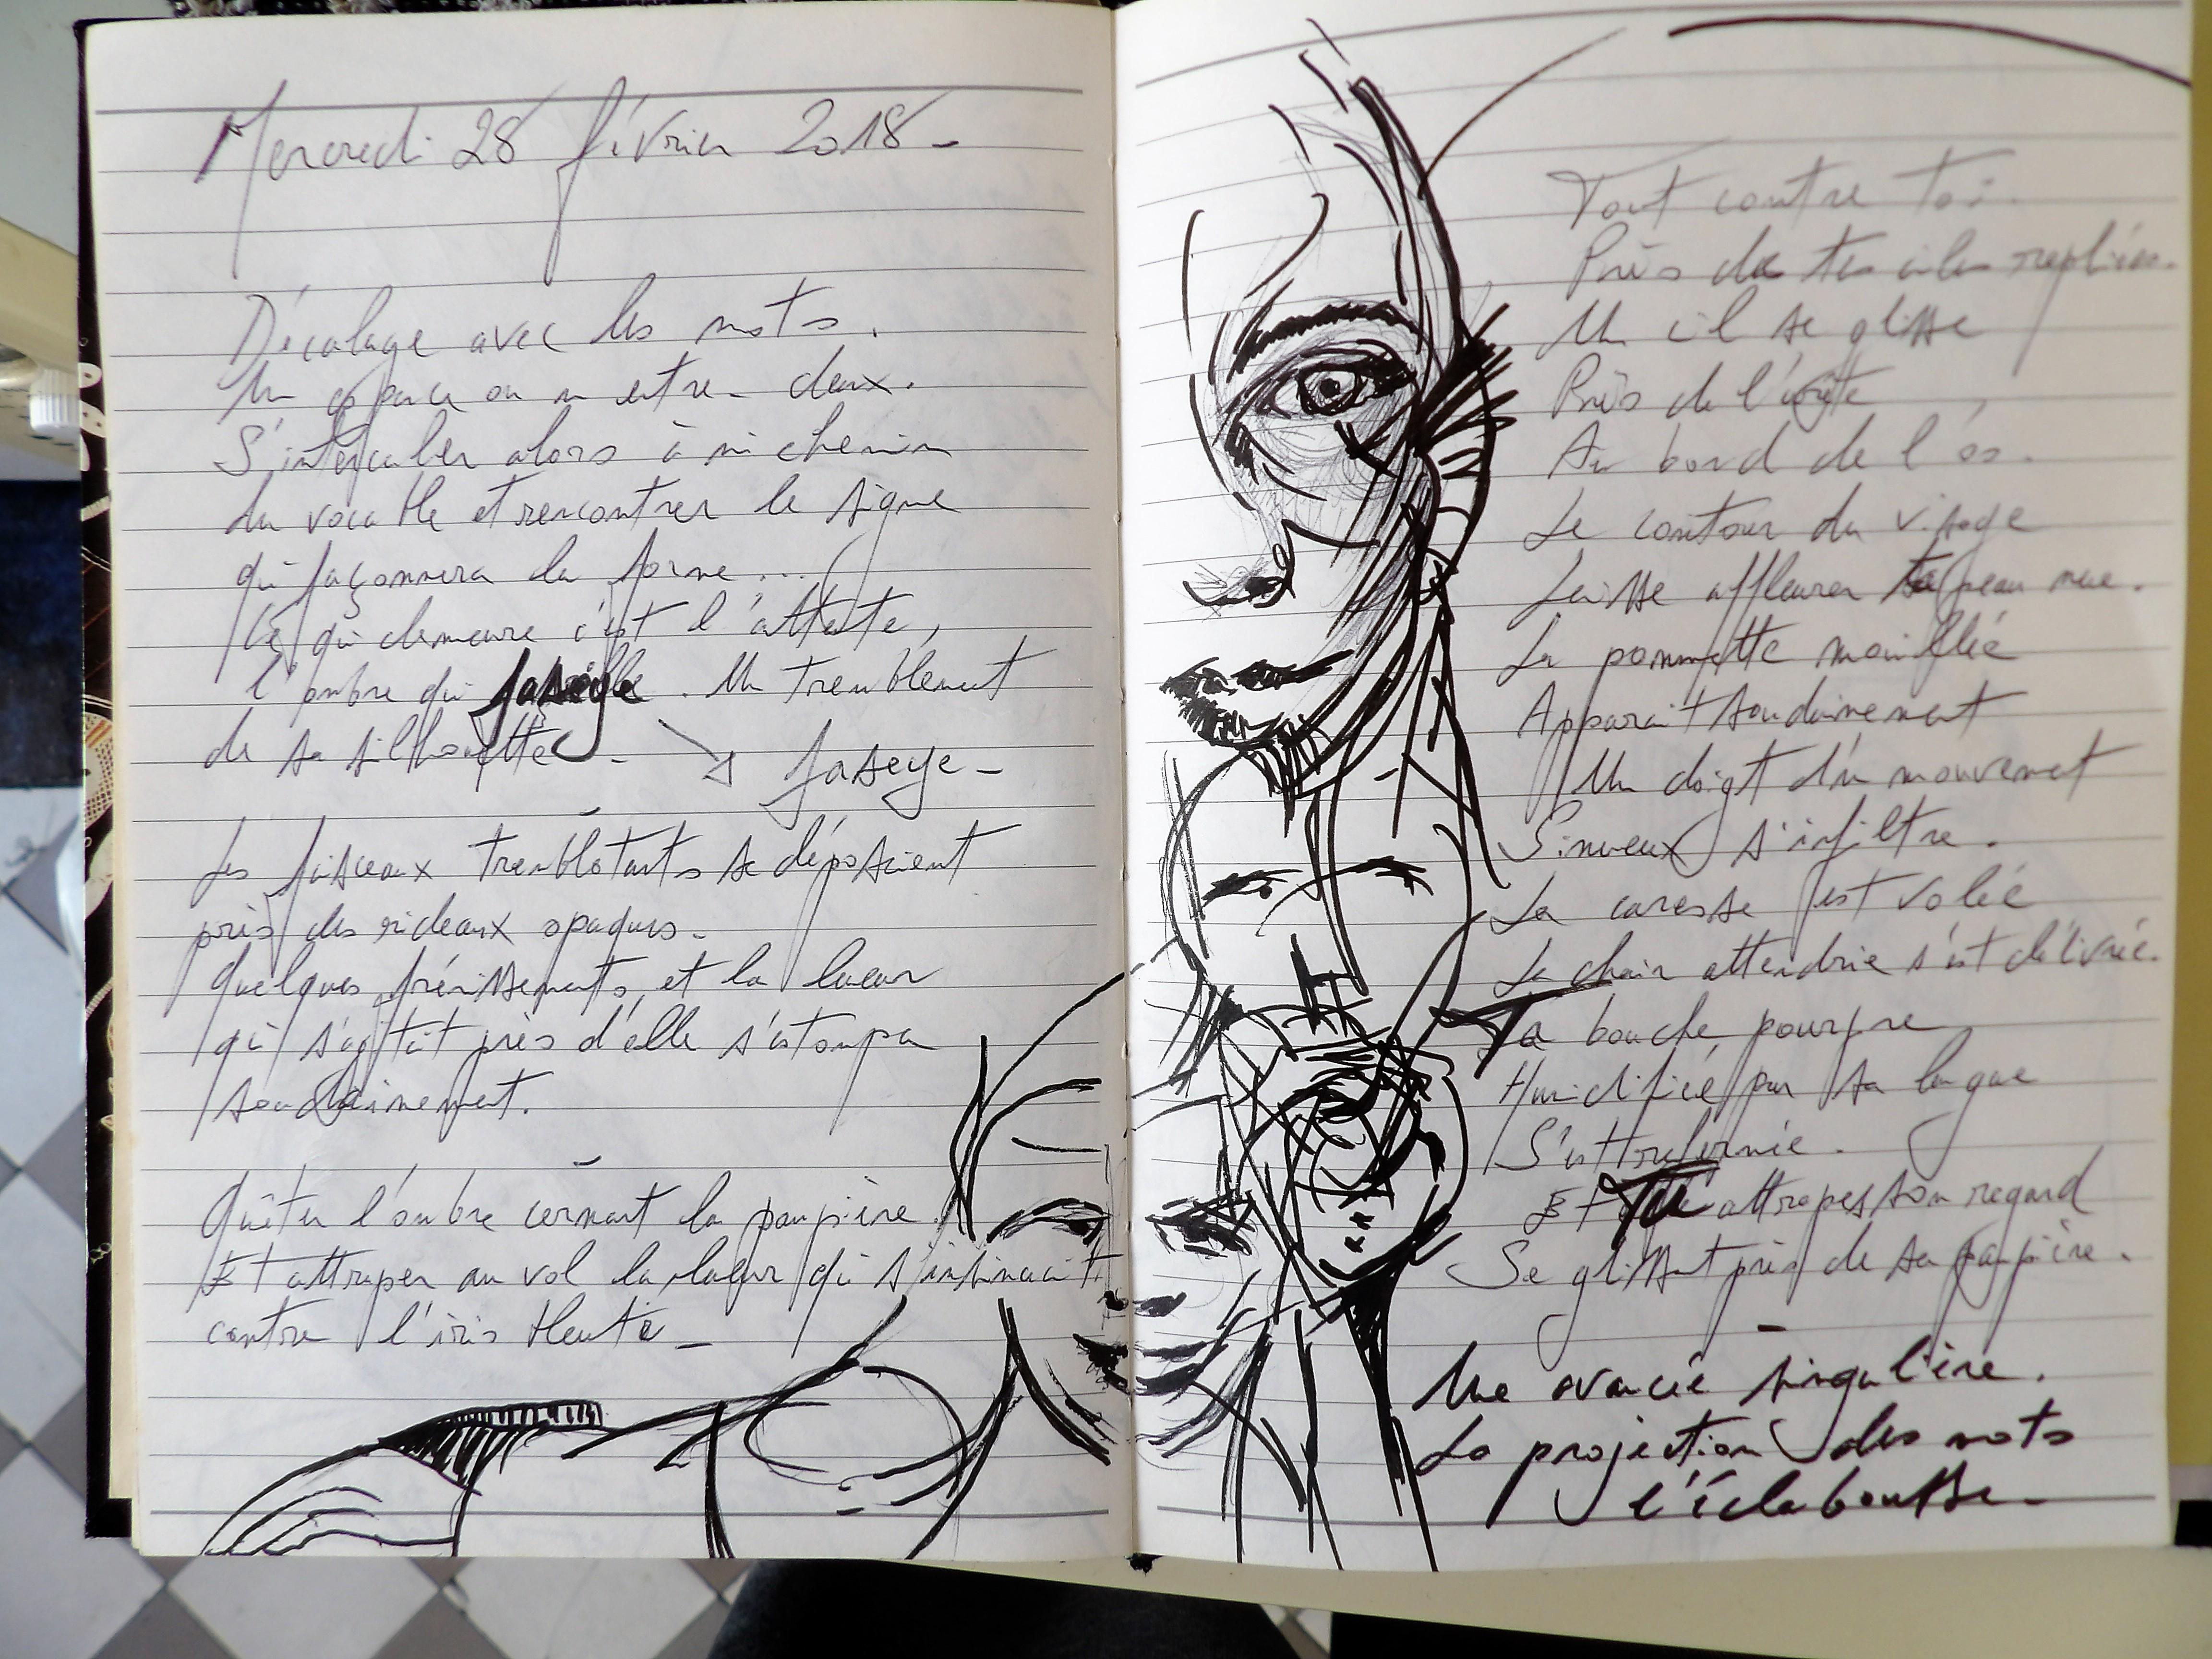 Mercredi 28 février 2018 -
Décalage avec les mots.
Un espace ou un entre-deux.
S'intercaler alors à mi chemin
du vocable et rencontrer le signe
qui façonnera la forme...
Ce qui demeure c'est l'attente,
l'ombre qui faseye. Un tremblement
de sa silhouette -
faseye -
Les faisceaux tremblotants se déposaient
près des rideaux opaques -
Quelques frémissements, et la lueur
qui s'agitait près d'elle s'estompa
soudainement.
-
Quêter l'ombre cernant la paupière.
Et attraper au vol la lueur qui s'insinuait
contre l'iris bleuté -
Tout contre toi.
Près de tes ailes repliées.
Un cil se glisse
Près de l'arête
Au bord de l'os.
Le contour du visage
Laisse affleurer ta peau nue.
La pommette mouillée
Apparait soudainement
Un doigt d'un mouvement
Sinueux s'infiltre.
La caresse est volée
La chair attendrie s'est délivrée.
Ta bouche pourpre
Humidifiée par sa langue
S'est refermée.
Et Tu attrapes son regard
Se glissant près de sa paupière.
-
Une avancée singulière.
La projection des mots
l'éclabousse -